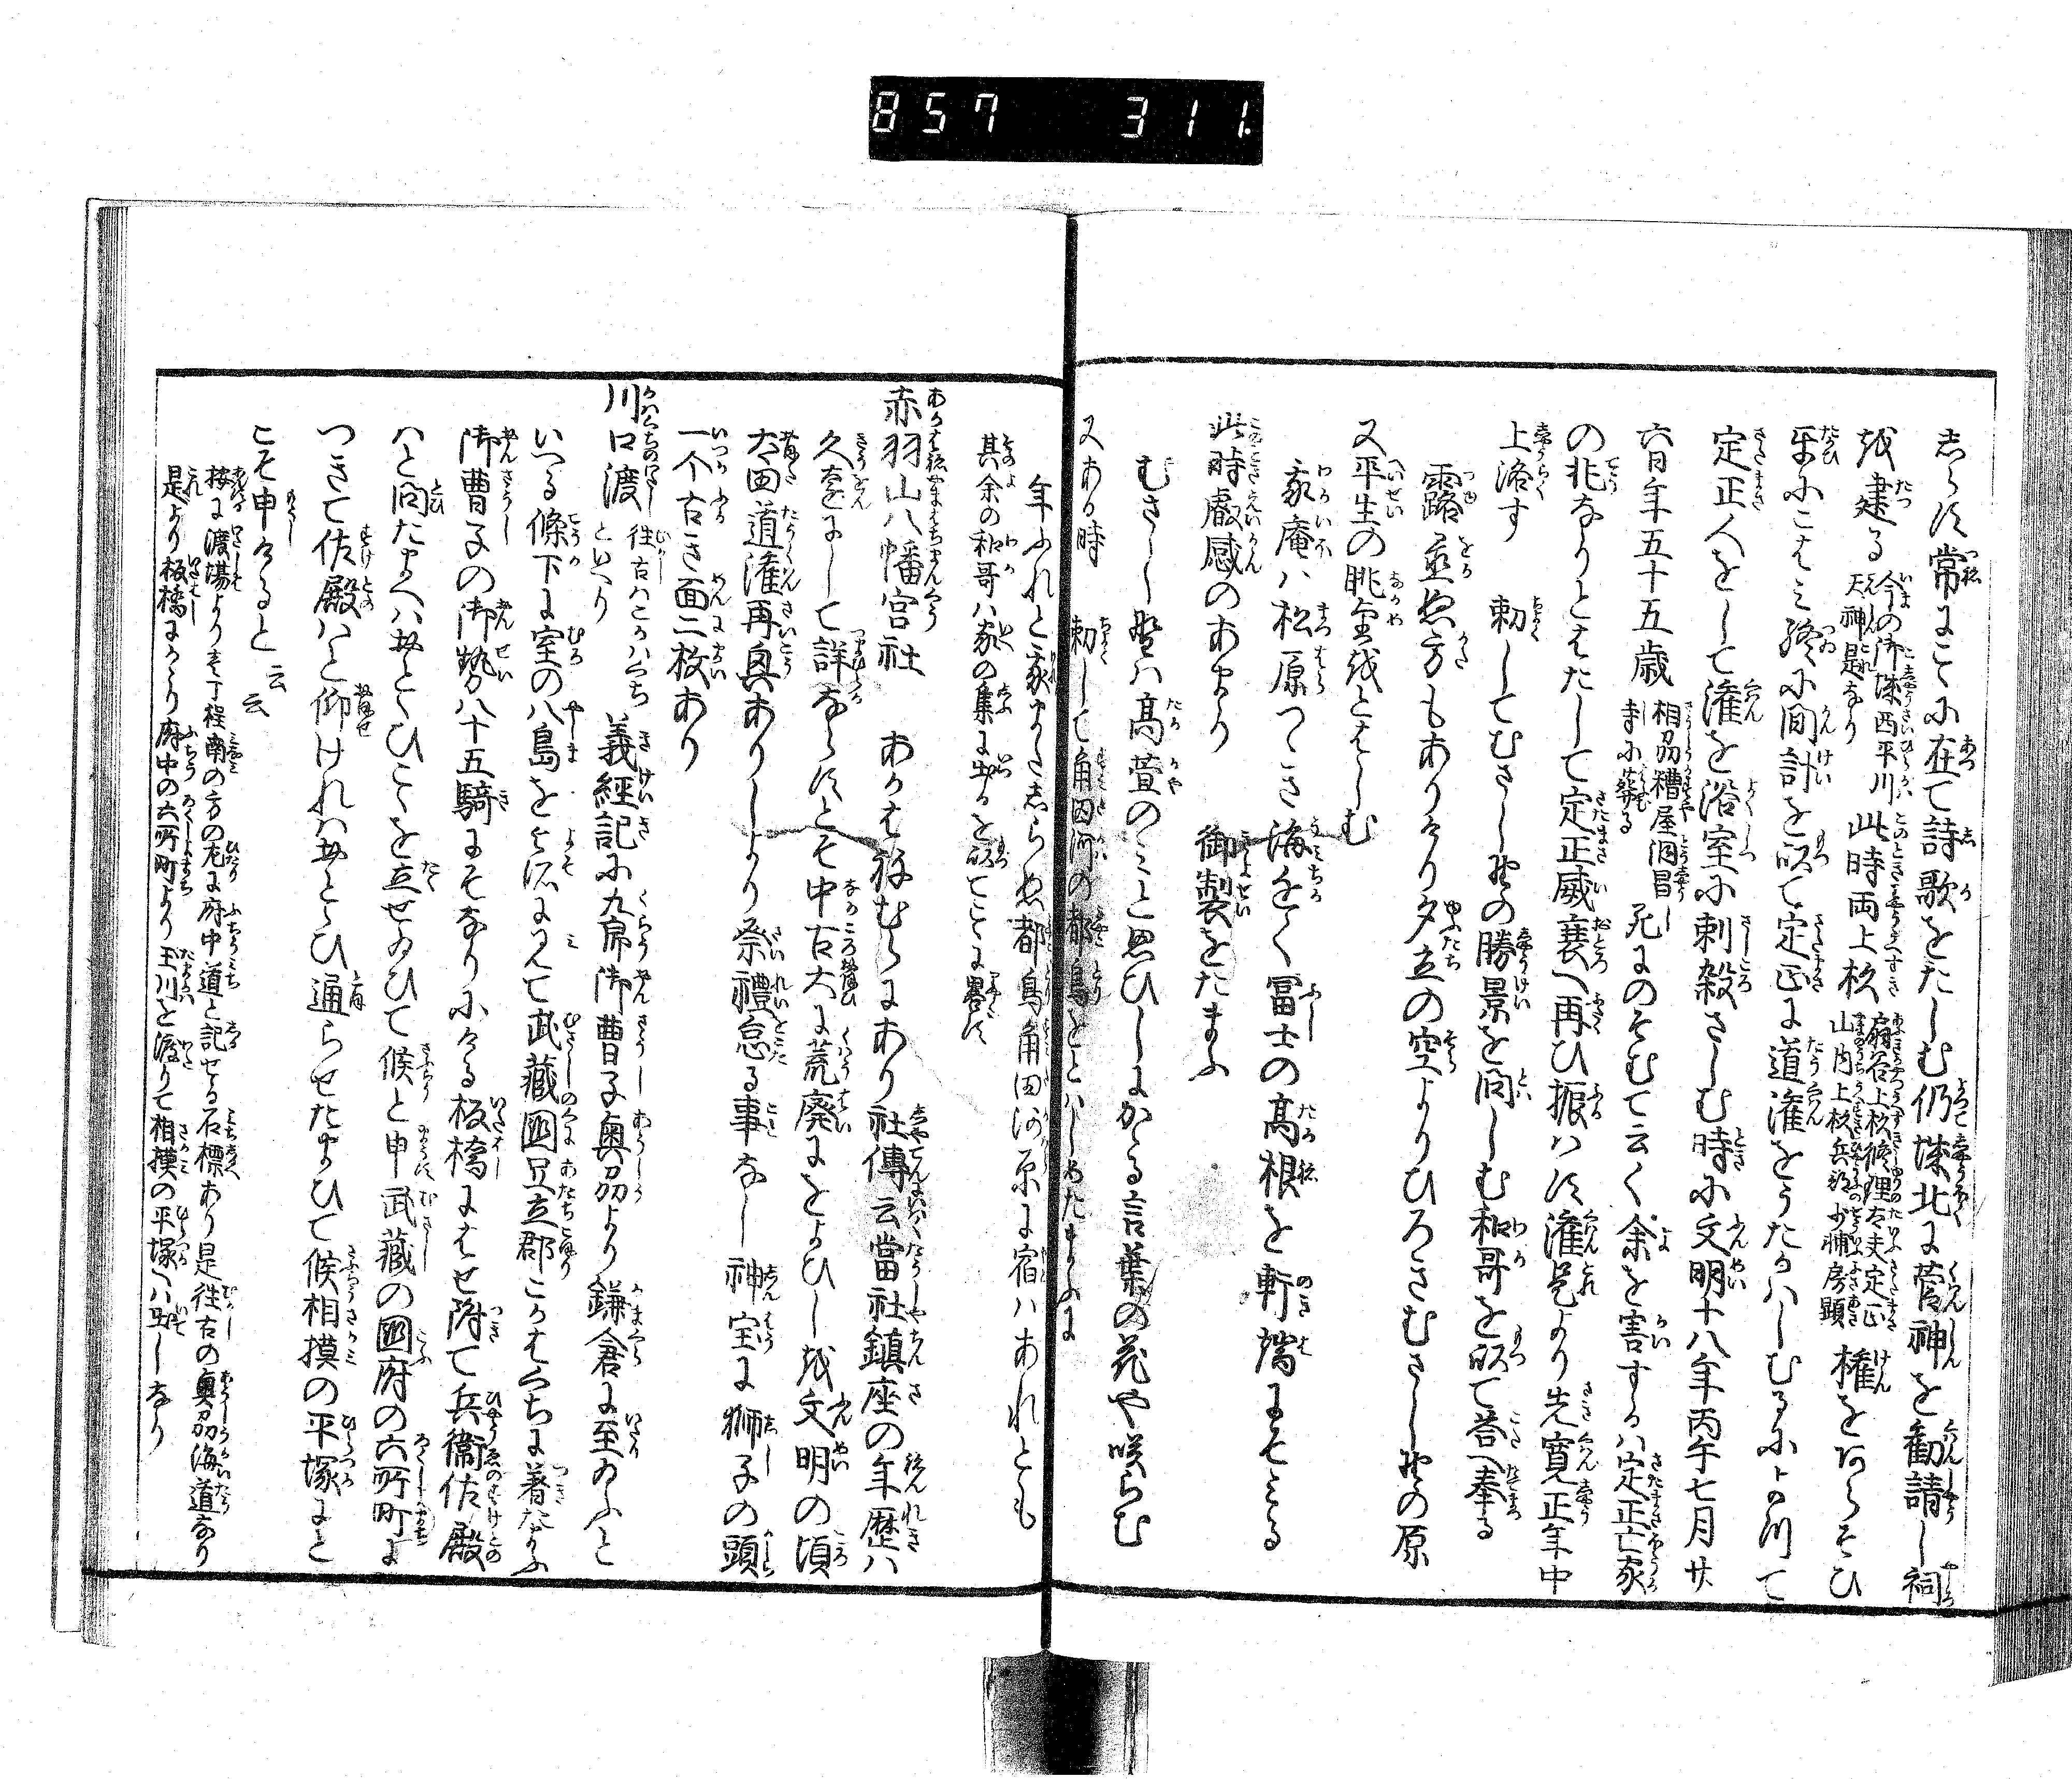 857 311.
しらす常にこゝに在て詩歌をたしむ仍城北に菅神を勧請し祠
を建る 今の御城西平川天神是なり 此時両上杦 扇谷上杦修理大夫定正山内上杦兵部少輔房顕 権をあらそひ
互にこはみ終に間計を以て定正に道灌をうたかはしむるによつて
定正人をして灌を浴室に刺殺さしむ時に文明十八年丙午七月廿
六日年五十五歳 相刕糟屋洞昌寺に葬る 死にのそむて云く余を害するハ定正亡家
の兆なりとはたして定正威衰へ再ひ振ハす灌是より先寛正年中
上洛す 勅してむさし野の勝景を問しむ和哥を以て答へ奉る
露置ぬ方もありけり夕立の空よりひろきむさし野の原
又平生の眺望をとはしむ
我庵ハ松原つゝき海近く冨士の高根を軒端にそみる
此時叡感のあまり 御製をたまふ
むさし野ハ高萱のミと思ひしにかゝる言葉の花や咲らむ
又ある時 勅して角田河の都鳥をとハしめたまふに
年ふれと我またしらぬ都鳥角田河原に宿ハあれとも
其余の和哥ハ家の集に出るを以てこゝに畧す
赤羽山八幡宮社 あかはねむらにあり社傳云當社鎮座の年歴ハ
久遠にして詳ならすとそ中古大に荒廃におよひしを文明の頃
太田道灌再興ありしより祭禮怠る事なし神宝に獅子の頭
一个古き面二枚あり
川口渡 往古ハこかハくちといへり 義經記に九郎御曹子奥刕より鎌倉に至ゐふと
いへる條下に室の八島をよそに見て武藏國足立郡こかはくちに着たまふ
御曹子の御勢八十五騎にそなりにける板橋にはせ附て兵衞佐殿
ハと問たまへハおとゝひこゝを立せゐひて候と申武藏の國府の六所町に
つきて佐殿ハと仰けれハおとゝひ通らせたまひて候相摸の平塚にと
こそ申けると云云
按に渡場よりも丁程南の方の左に府中道と記せる石標あり是往古の奥刕海道なり
是より板橋にかゝり府中の六所町より玉川を渡りて相摸の平塚へハ出しなり